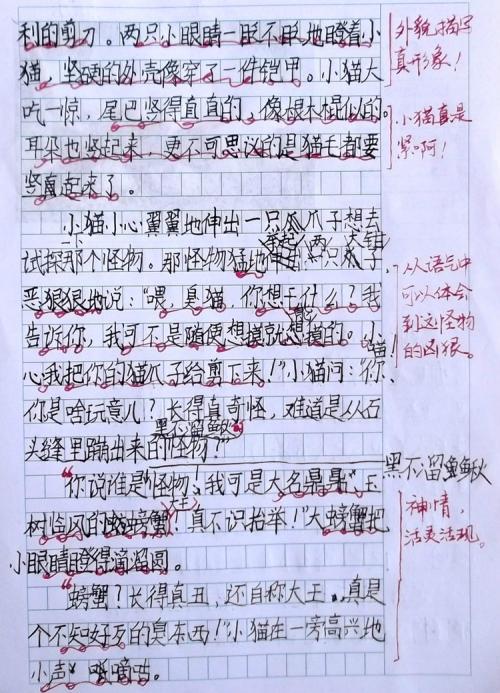 利的剪刀。两只小眼睛一眨不眨地瞪着小
猫，坚硬的外壳像穿了一件铠甲。小猫大
吃一惊，尾巴竖得直直的，像根木棍似的。
耳朵也竖起来，更不可思议的是猫毛都要
竖直起来了。
小猫小心翼翼地伸出一只爪爪子想去
举起两大钳
试探那个怪物。那怪物猛地伸出一只爪子
恶狠狠地说：“喂，臭猫，你想干什么？我
能
告诉你，我可不是随便想摸就想摸的。小
心我把你的猫爪子给剪下来！”小猫问：“你、
喵！
你是啥玩意儿？长得真奇怪，难道是从石
黑不溜鳅
头缝里蹦出来的怪物？”
“你说谁是‘怪物’，我可是大名鼎鼎，玉
大王
树临风的螃蟹！真不识抬举！”大螃蟹把
小眼睛瞪得溜溜圆。
“螃蟹？长得真丑，还自称大王，真是
个不知好歹的臭东西！”小猫在一旁高兴地
小声
外貌描写
真形象！
小猫真是
紧啊！
从语气中
可以体会
到这怪物
的凶狠。
黑不溜鳅
神情，
活灵活现。